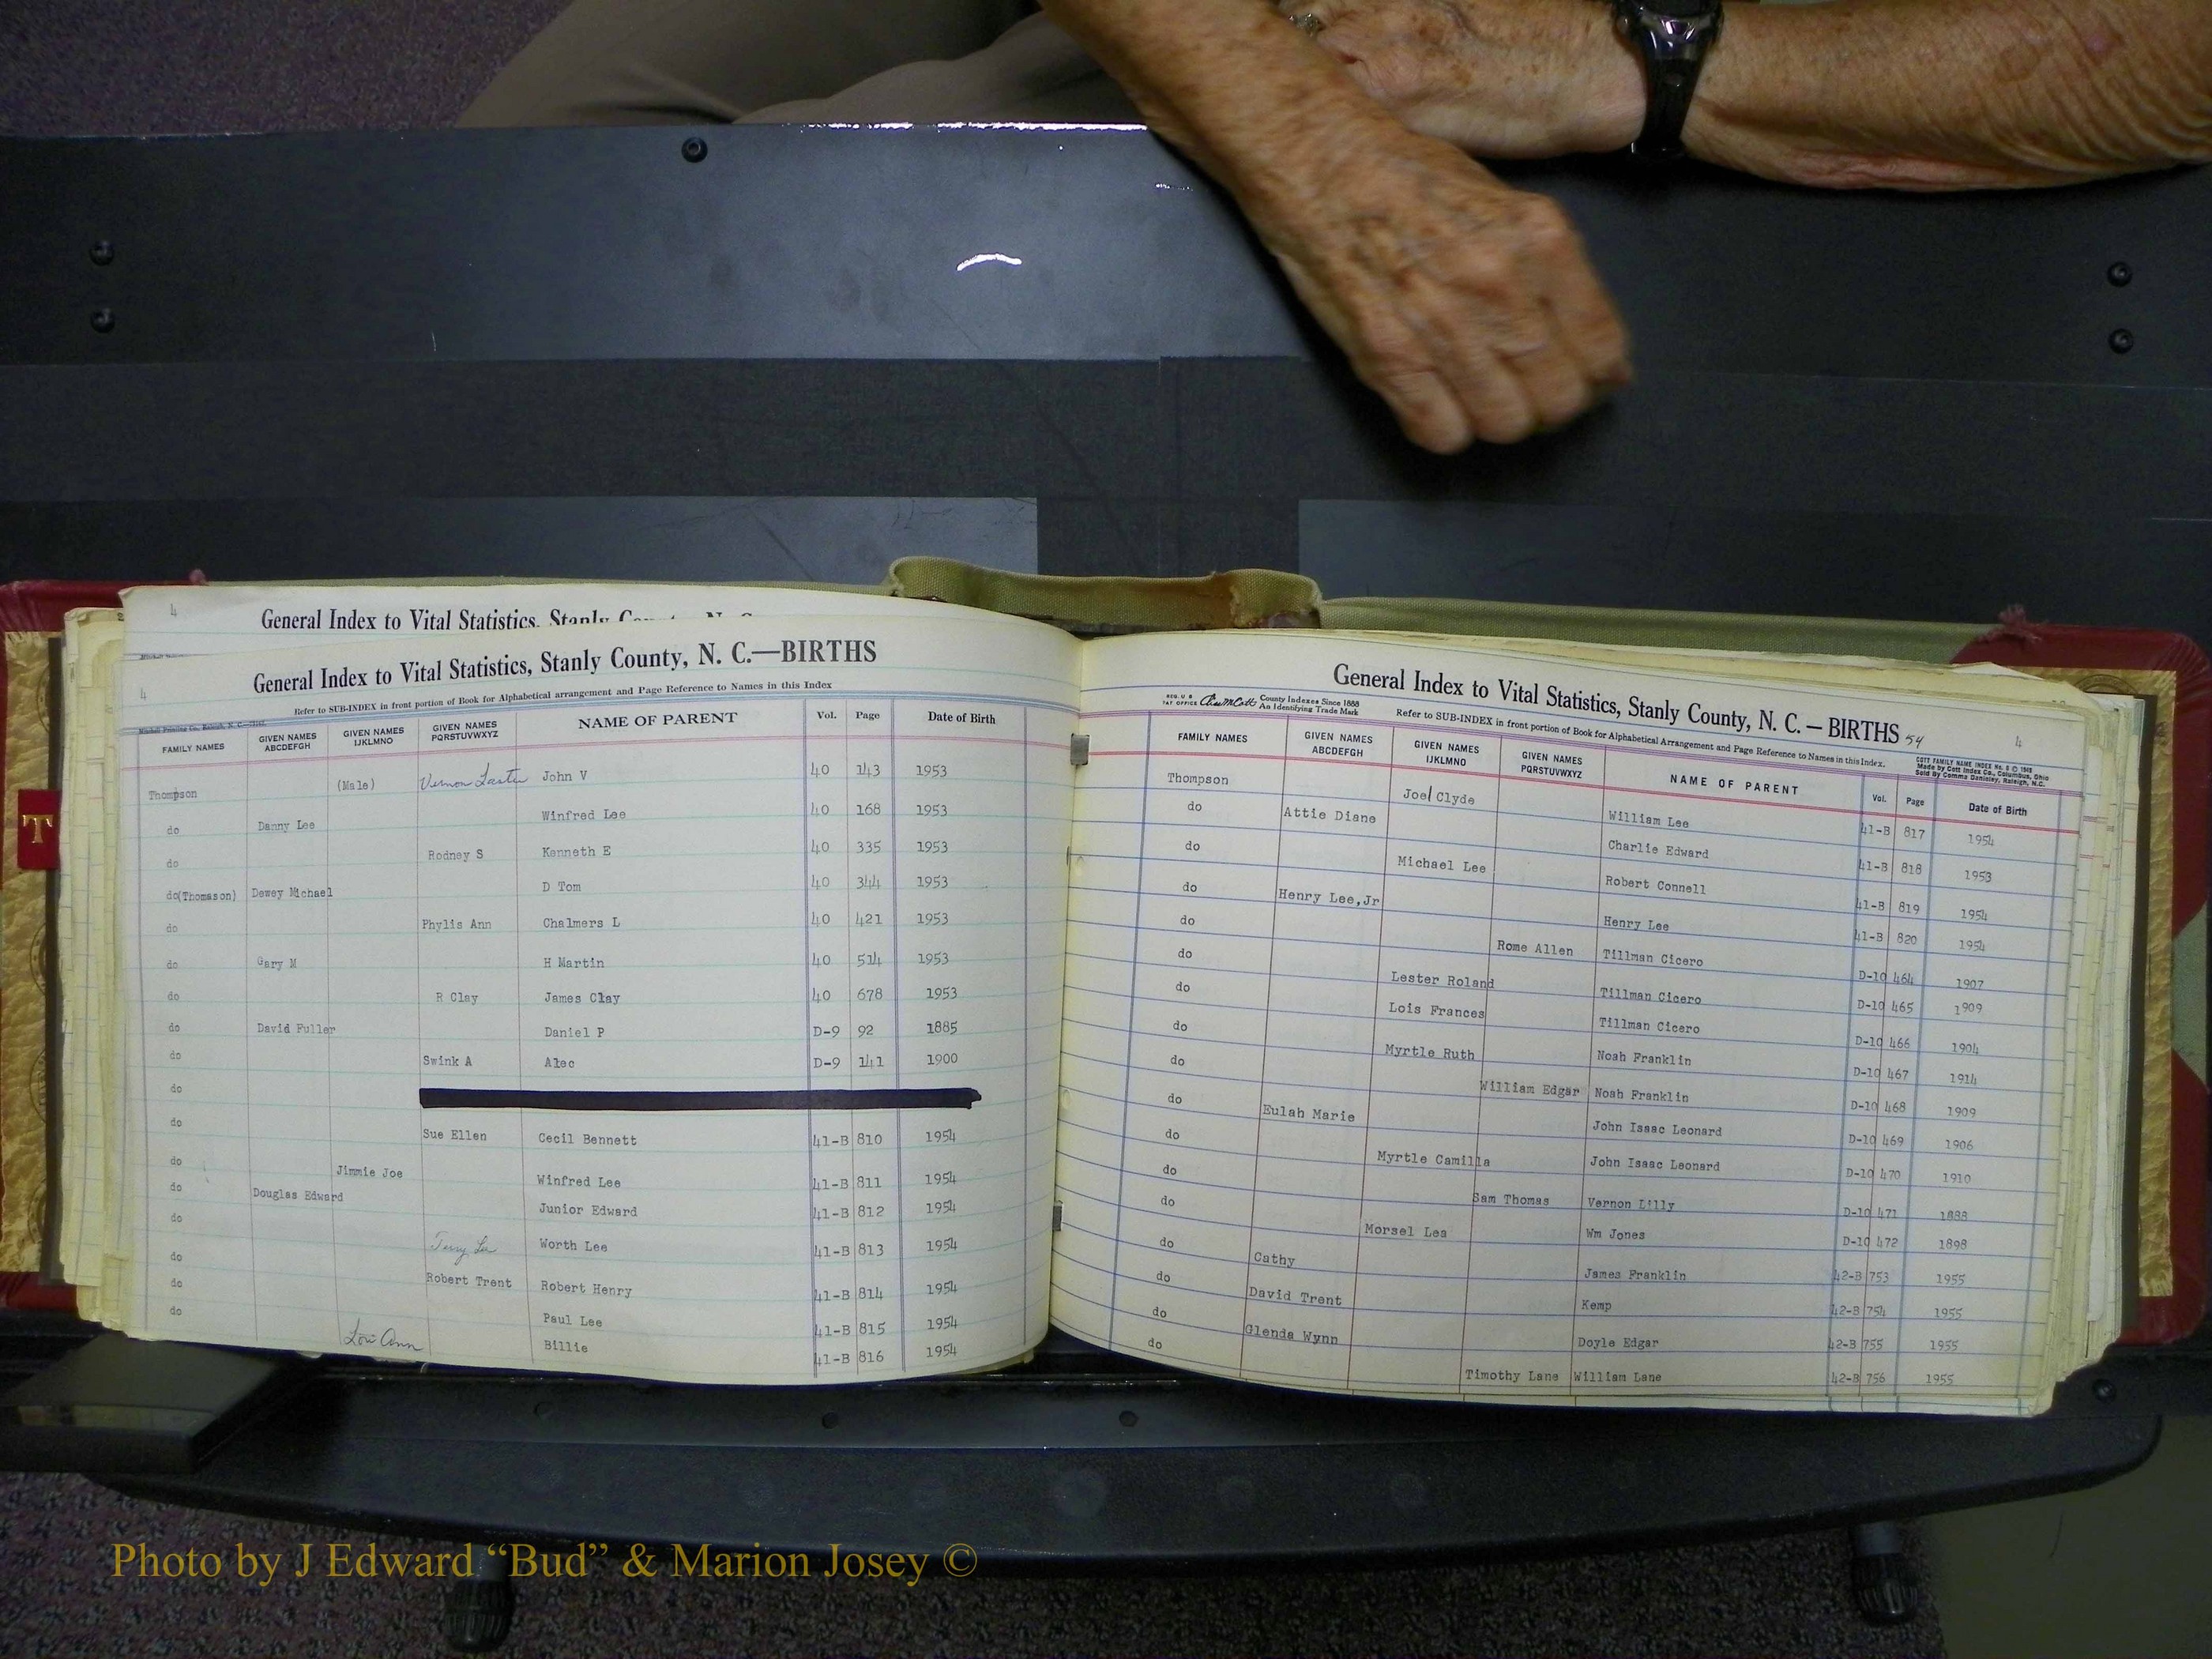 4
General Index to Vital Statistics, Stanly
4
General Index to Vital Statistics, Stanly County, N. C.—BIRTHS
Refer to SUB-INDEX in front portion of Book for Alphabetical arrangement and Page Reference to Names in this Index
FAMILY NAMES GIVEN NAMES ABCDEFGH GIVEN NAMES IJKLMNO GIVEN NAMES PQRSTUVWXYZ NAME OF PARENT Vol. Page Date of Birth
Thompson (Male) Vernon Laster John V 40 143 1953
do Danny Lee Winfred Lee 40 168 1953
do Rodney S Kenneth E 40 335 1953
do(Thomason) Dewey Michael D Tom 40 344 1953
do Phylis Ann Chalmers L 40 421 1953
do Gary M H Martin 40 514 1953
do R Clay James Clay 40 678 1953
do David Fuller Daniel P D-9 92 1885
do Swink A Alec D-9 141 1900
do
do Sue Ellen Cecil Bennett 41-B 810 1954
do Jimmie Joe Winfred Lee 41-B 811 1954
do Douglas Edward Junior Edward 41-B 812 1954
do Terry Lee Worth Lee 41-B 813 1954
do Robert Trent Robert Henry 41-B 814 1954
do Paul Lee 41-B 815 1954
do Lori Ann Billie 41-B 816 1954
T
General Index to Vital Statistics, Stanly County, N. C. — BIRTHS 54
4
REG. U. S. PAT OFFICE County Indexes Since 1888 An Identifying Trade Mark
Refer to SUB-INDEX in front portion of Book for Alphabetical Arrangement and Page Reference to Names in this Index.
COTT FAMILY NAME INDEX No. 8 © 1948
Made by Cott Index Co., Columbus, Ohio
Sold By Comma Danieley, Raleigh, N.C.
FAMILY NAMES GIVEN NAMES ABCDEFGH GIVEN NAMES IJKLMNO GIVEN NAMES PQRSTUVWXYZ NAME OF PARENT Vol. Page Date of Birth
Thompson Joel Clyde William Lee 41-B 817 1954
do Attie Diane Charlie Edward 41-B 818 1953
do Michael Lee Robert Connell 41-B 819 1954
do Henry Lee,Jr Henry Lee 41-B 820 1954
do Rome Allen Tillman Cicero D-10 464 1907
do Lester Roland Tillman Cicero D-10 465 1909
do Lois Frances Tillman Cicero D-10 466 1904
do Myrtle Ruth Noah Franklin D-10 467 1914
do William Edgar Noah Franklin D-10 468 1909
do Eulah Marie John Isaac Leonard D-10 469 1906
do Myrtle Camilla John Isaac Leonard D-10 470 1910
do Sam Thomas Vernon Lilly D-10 471 1888
do Morsel Lea Wm Jones D-10 472 1898
do Cathy James Franklin 42-B 753 1955
do David Trent Kemp 42-B 754 1955
do Glenda Wynn Doyle Edgar 42-B 755 1955
do Timothy Lane William Lane 42-B 756 1955
Photo by J Edward “Bud” & Marion Josey ©